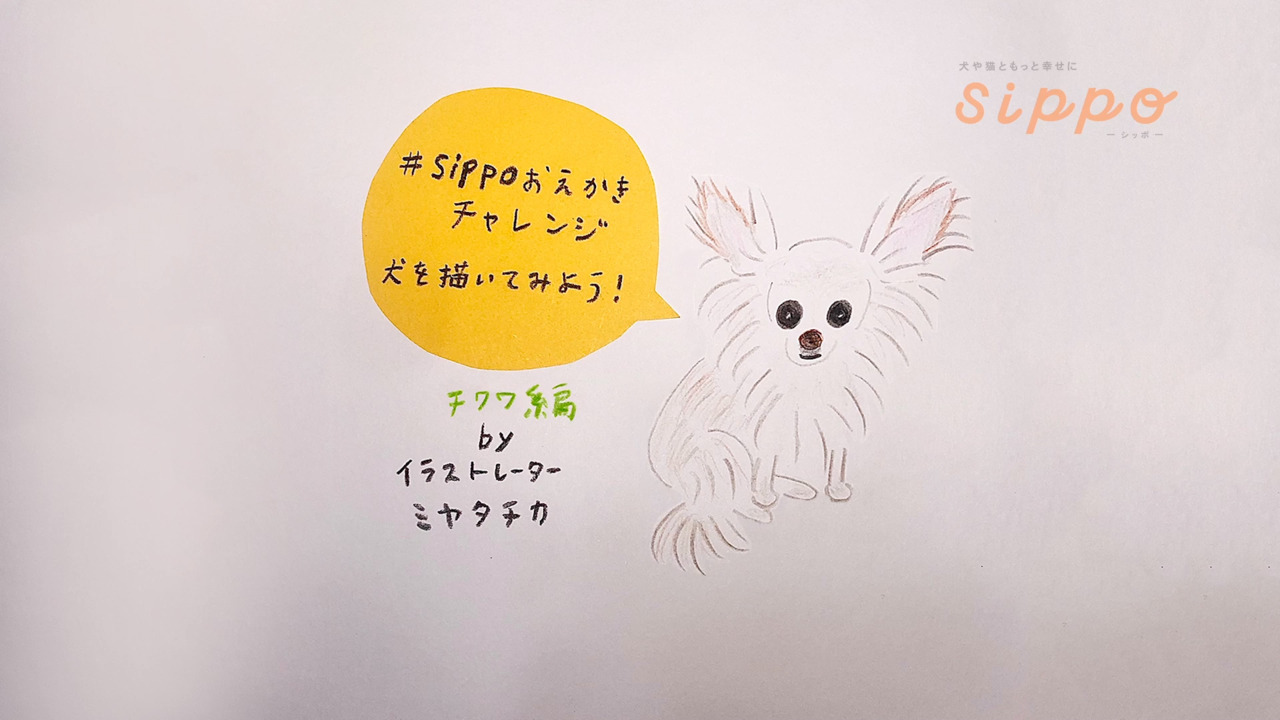 犬や猫ともっと幸せに
sippo
ー シッポ ー
#sippoおえかき
チャレンジ
犬を描いてみよう!
チワワ編
by
イラストレーター
ミヤタチカ